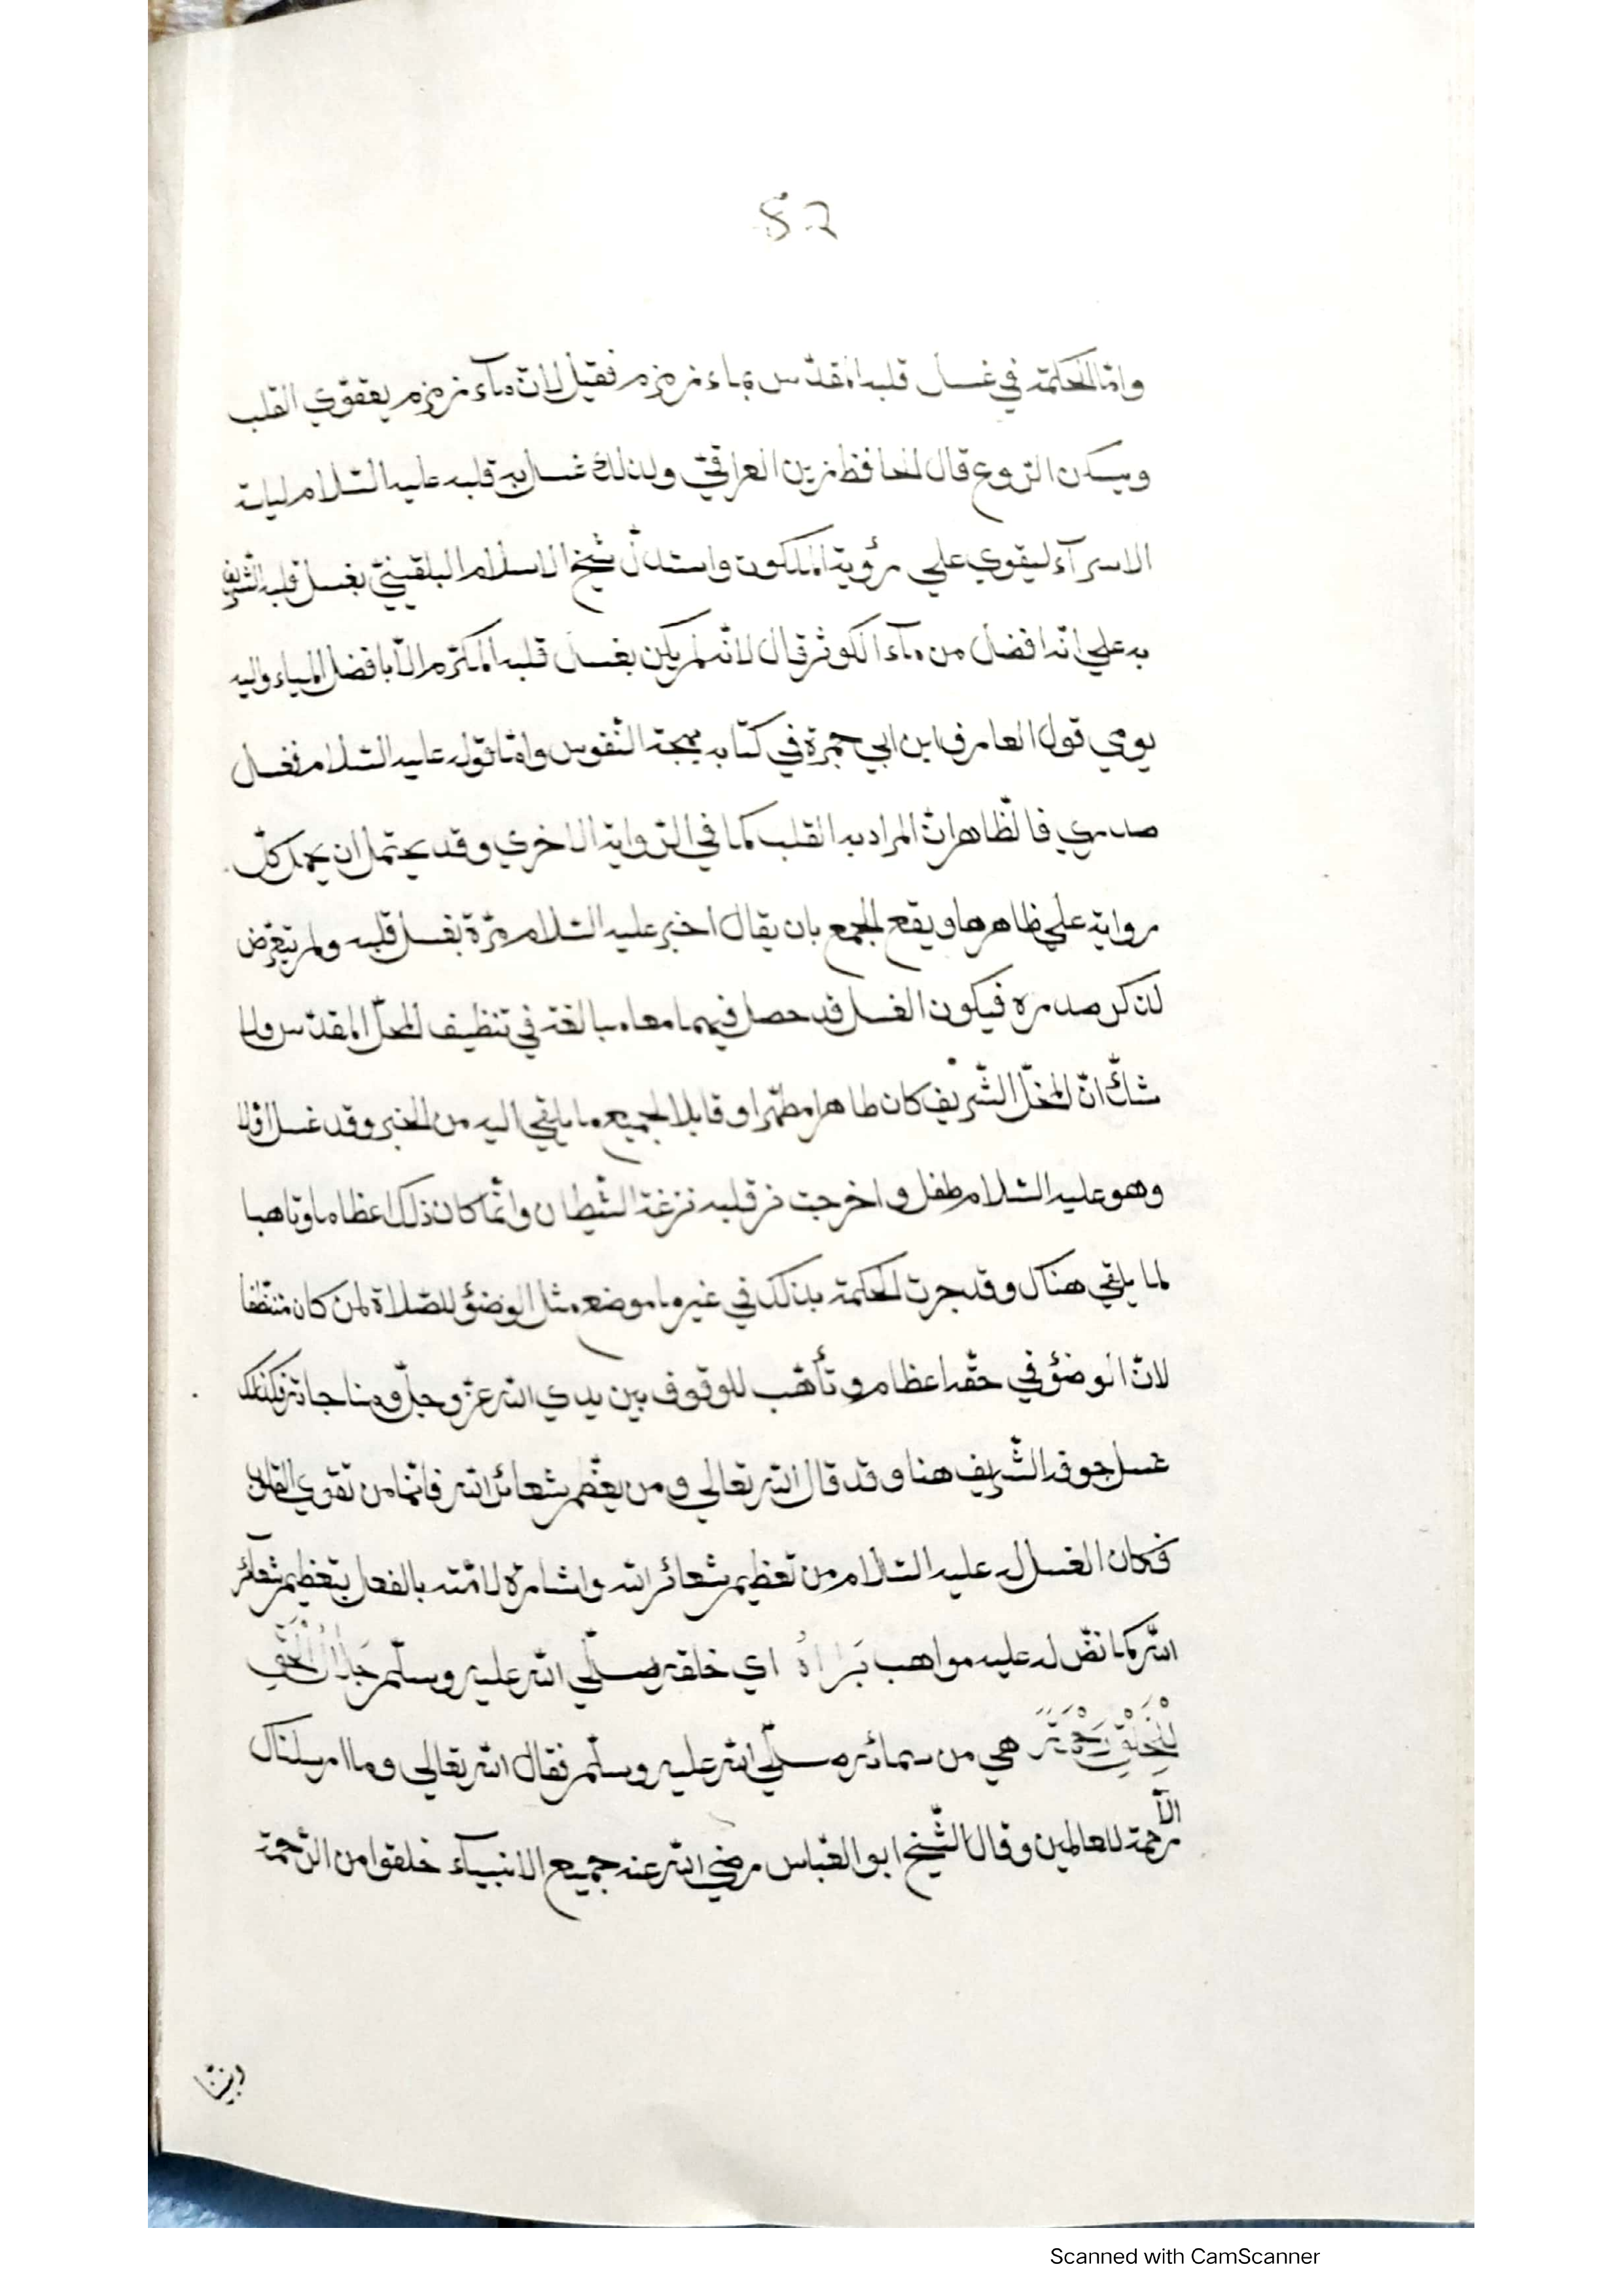 52
وامّا الحكمة في غسل قلبه المقدّس بماء زمزم فقيل لانّ مآء زمزم يققوّي القلب
ويسكن الرّوع قال الحافظ زين العراقيّ ولذلك غسل به قلبه عليه السّلام ليلة
الاسرآء ليقوي علي رؤية الملكوت واستدلّ شيخ الاسلام البلقينيّ بغسل قلبه الشّريف
به علي انّه افضل من مآء الكوثر قال لانّه لم يكن يغسل قلبه المكرّم الّا بافضل المياه واليه
يومي قول العارف ابن ابي جمرة في كتابه بهجة النّفوس وامّا قوله عليه السّلام فغسل
صدري فالظّاهر انّ المراد به القلب كما في الرّواية الاخري وقد يحتمل ان يحمل كلّ
رواية علي ظاهرها ويقع الجمع بان يقال اخبر عليه السّلام مرّة بغسل قلبه ولم يتعرّض
لذكر صدره فيكون الغسل قد حصل فيهما معا مبالغة في تنظيف المحلّ المقدّس ولا
شكّ انّ المحلّ الشّريف كان طاهرا مطهّرا وقابلا لجميع ما يلقي اليه من الخير وقد غسل اوّلا
وهو عليه السّلام طفل واخرجت من قلبه نزغة الشّيطان وانّما كان ذلك اعظاما وتاهبا
لما يلقي هناك وقد جرت الحكمة بذلك في غير ما موضع مثل الوضؤ للصّلاة لمن كان متنظّفا
لانّ الوضؤ في حقّه اعظام وتأهّب للوقوف بين يدي الله عزّ وجلّ ومناجاته فكذلك
غسل جوفه الشّريف هنا وقد قال الله تعالي ومن يعظّم شعائر الله فانّها من تقوي القلوب
فكان الغسل له عليه السّلام من تعظيم شعائر الله واشارة لامّته بالفعل بتعظيم شعآئر
الله كما نصّ له عليه مواهب بَرَاهُ اي خلقه صلّي الله عليه وسلّم جَلَالُ الْحَقِّ
لِلْخَلْقِ رَحْمَةً هي من سمائه صلّي الله عليه وسلّم فقال الله تعالي وما ارسلناك
الّا
رحمة للعالمين وقال الشّيخ ابو العبّاس رضي الله عنه جميع الانبيآء خلقوا من الرّحمة
ونبيّنا
Scanned with CamScanner